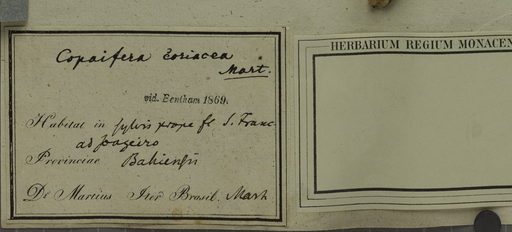 Copaifera coriacea
Mart.
vid. Bentham 1869.
Habitat in sylvis prope fl. S. Franc.
ad Joazeiro
Provinciae Bahiensis
Dr Martius Iter Brasil. Mart
HERBARIUM REGIUM MONACEN